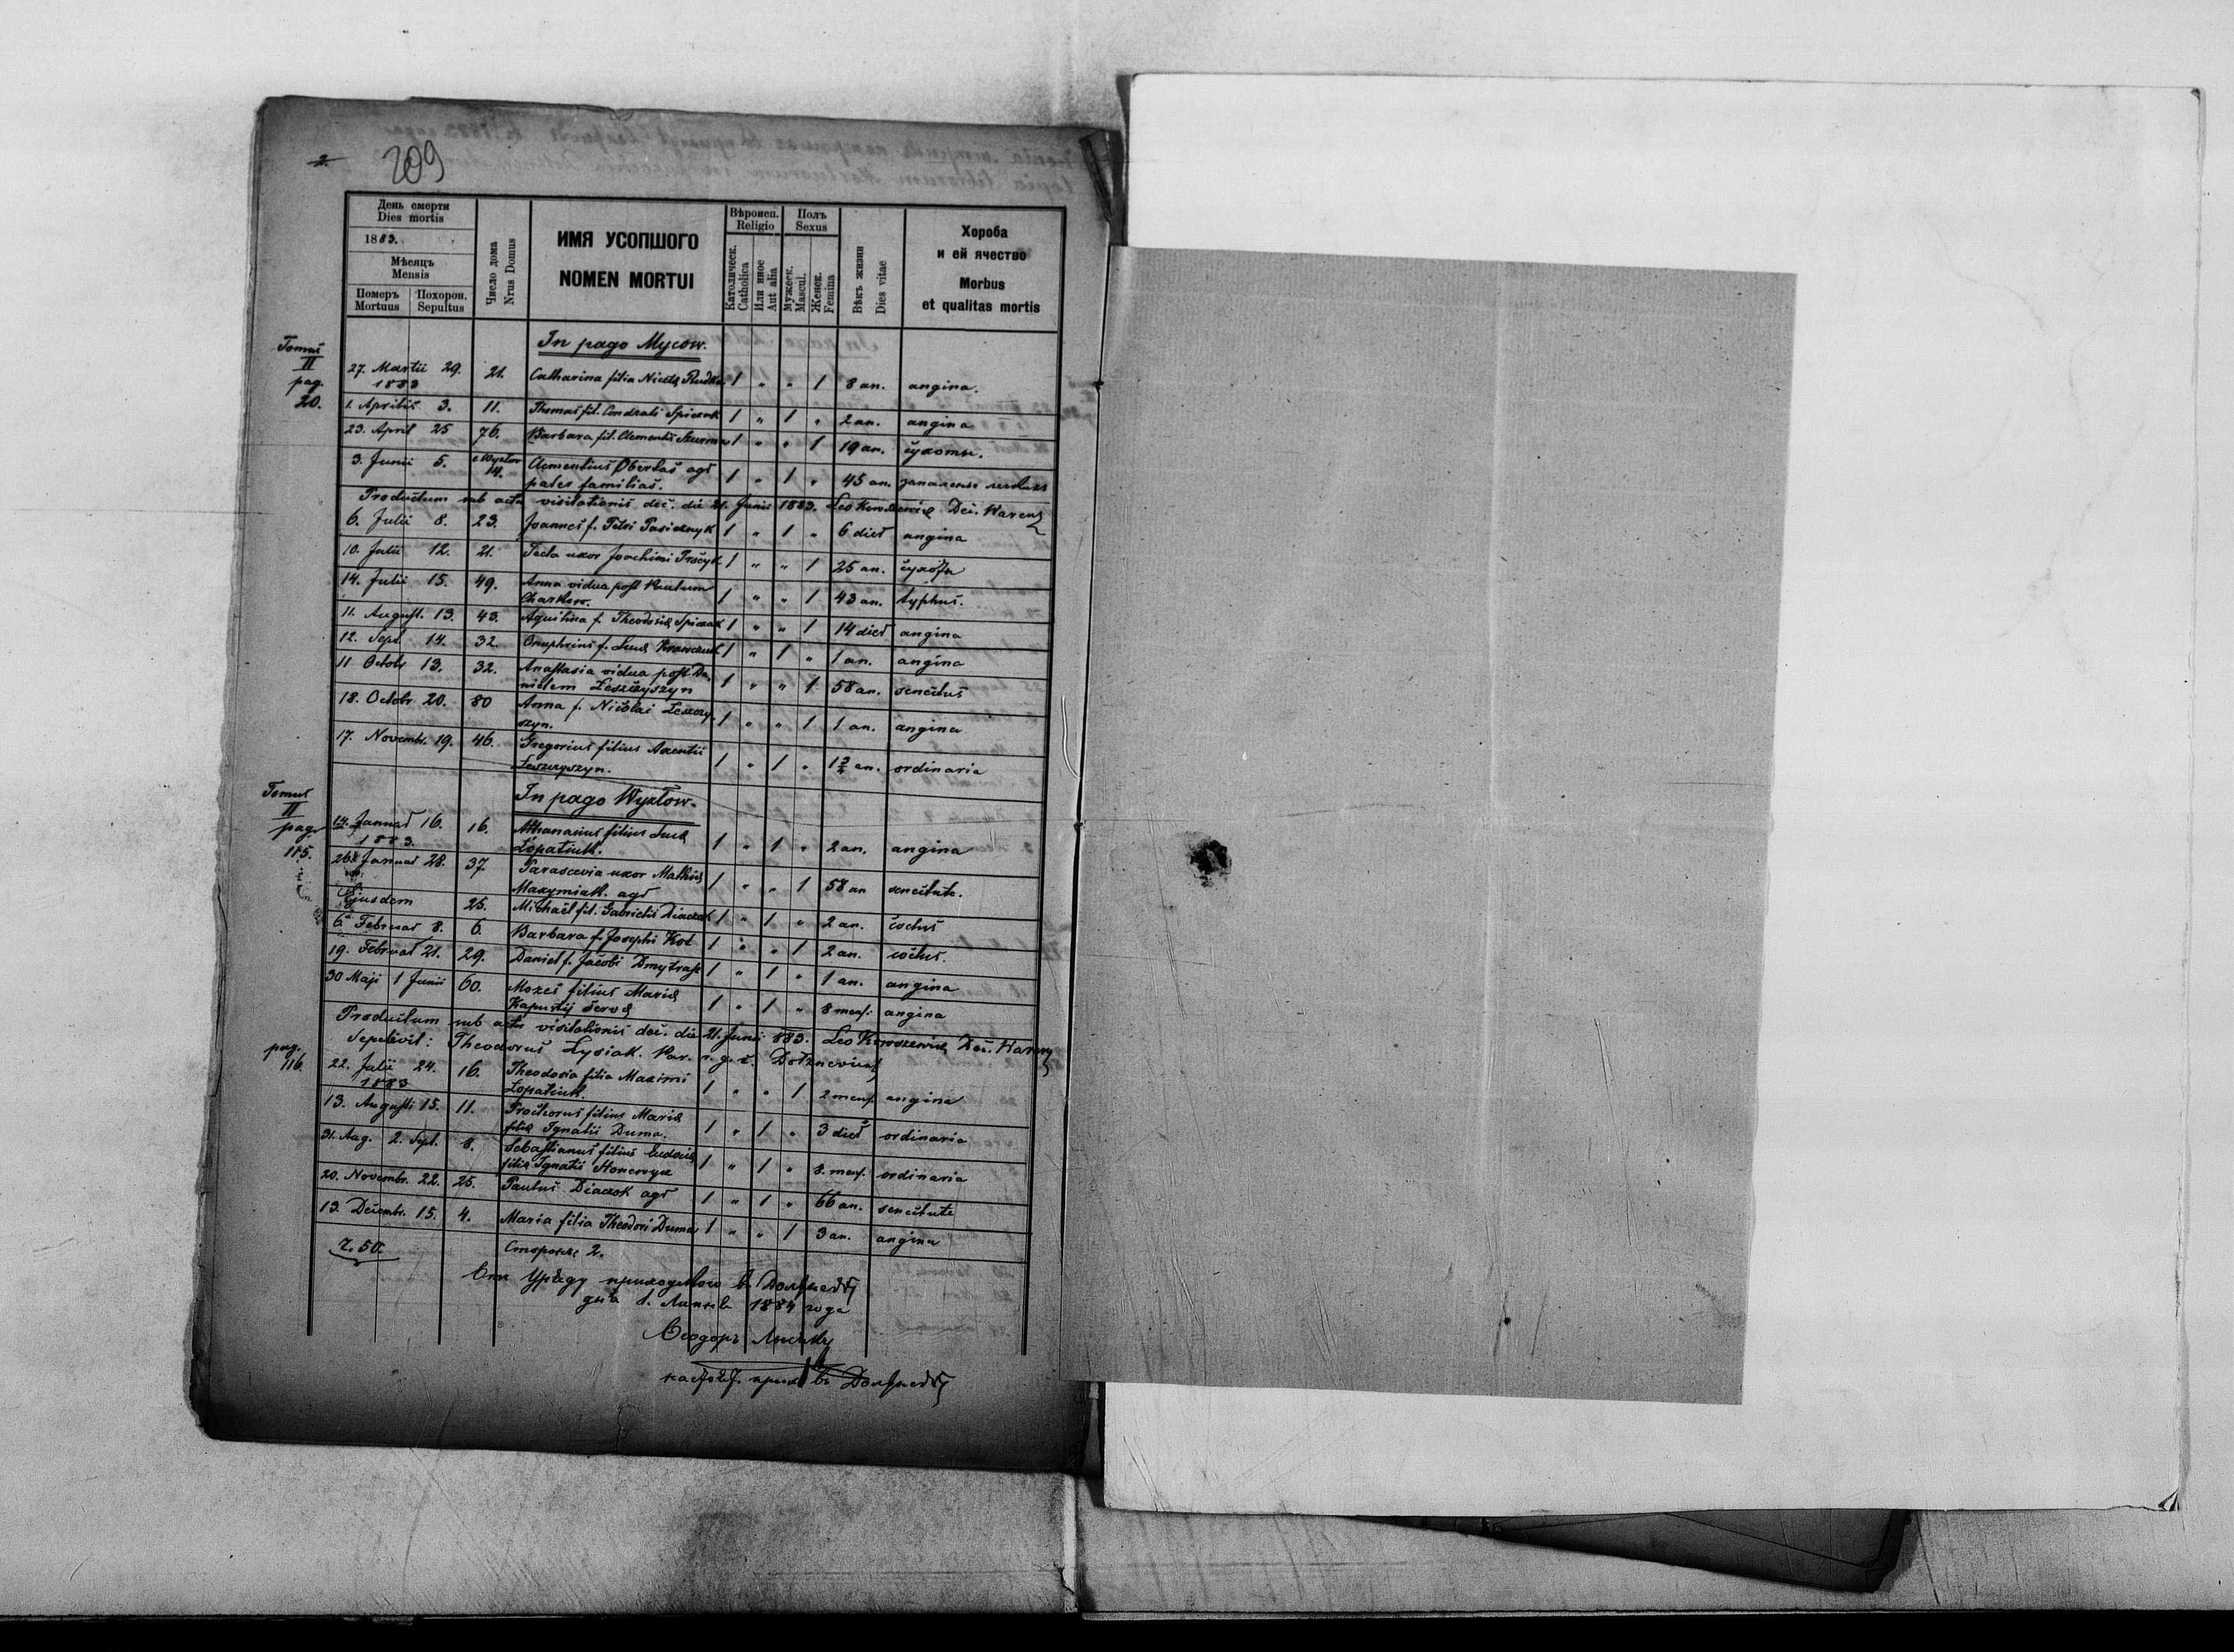 2.
209
День смерти
Dies mortis
1883.
Мѣсяцъ
Mensis
Померъ
Mortuus
Похорон.
Sepultus
Число дома
Nrus Domus
ИМЯ УСОПШОГО
NOMEN MORTUI
Вѣроисп.
Religio
Католическ.
Catholica
Или иное
Aut alia
Полъ
Sexus
Мужеск.
Mascul.
Женск.
Femina
Вѣкъ жизни
Dies vitae
Хороба
и ей ячество
Morbus
et qualitas mortis
Tomus
II
pag.
20.
In pago Mycow.
27. Martii 29. 21. Catharina filia Nicetæ Rudka 1 " " 1 8 an. angina.
1883
1. Aprilis 3. 11. Thomas fil. Condrati Spiczak 1 " 1 " 2 an. angina
23. April 25 76. Barbara fil. Clementis 1 " " 1 19 an. сухоты.
3. Junii 5. e Wyzlow 14. Clementius Obertas agr 1 " 1 " 45 an. запаленье
pater familias.
Productum sub actu visitationis dec. die 21. Junii 1883. Leo Dec. Warenz
6. Julii 8. 23. Joannes f. Petri Pasicznyk 1 " 1 " 6 dies angina
10. Julii 12. 21. Tecla uxor Joachimi 1 " " 1 25 an. сухоты
14. Julii 15. 49. Anna vidua post Paulum
Charkow. 1 " " 1 43 an. typhus.
11. August. 13. 43. Aquilina f. Theodosiæ Spiczak 1 " " 1 14 dies angina
12. Sept. 14. 32. Onuphrius f. Lucæ Krawczuk 1 " 1 " 1 an. angina
11 Octobr 13. 32. Anastasia vidua post Da-
nielem Leszczyszyn 1 " " 1 58 an. senectus
18. Octobr 20. 80 Anna f. Nicolai Leszczy-
szyn. 1 " " 1 1 an. angina
17. Novembr. 19. 46. Gregorius filius Axentii
Leszczyszyn. 1 " 1 " an. ordinaria
Tomus
II
pag.
115.
In pago Wyzlow.
14. Januar 16. 16. Athanasius filius Lucæ
1883. Lopatiuk. 1 " 1 " 2 an. angina
26. Januar 28. 37. Parascevia uxor Mathiæ
Maxymiak. agr 1 " " 1 58 an senectute.
Ejusdem 25. Michael fil. Gabrielis Diaczok 1 " 1 " 2 an. coctus
6. Februar 8. 6. Barbara f. Josephi Kot 1 " " 1 2 an. coctus.
19. Februar 21. 29. Daniel f. Jacobi Dmytrasz 1 " 1 " 1 an. angina
30 Maji 1 Junii 60. Mozes filius Mariæ
Kapustij servæ 1 " 1 " 8 mens. angina
Productum sub actu visitationis dec. die 21. Junii 883. Leo Dec. Warenz
Sepelivit: Theodorus Lysiak. Par. r. g. c. Dołzneviens
pag.
116.
22. Julii 24. 16. Theodosia filia Maximi
1883 Lopatiuk. 1 " " 1 2 mens. angina
13. Augusti 15. 11. Prochorus filius Mariæ
filiæ Ignatii Duma. 1 " 1 " 3 dies ordinaria
31. Aug. 2. Sept. 8. Sebastianus filius Eudociæ
filiæ Ignatii 1 " 1 " 8. mens. ordinaria
20. Novembr. 22. 25. Paulus Diaczok agr 1 " 1 " 66 an. senectute
13. Decembr. 15. 4. Maria filia Theodori Duma 1 " " 1 3 an. angina
50. 2.
Отъ Уряду приходского въ
дня 1. 1884 года
Ѳеодоръ Лисякъ
въ